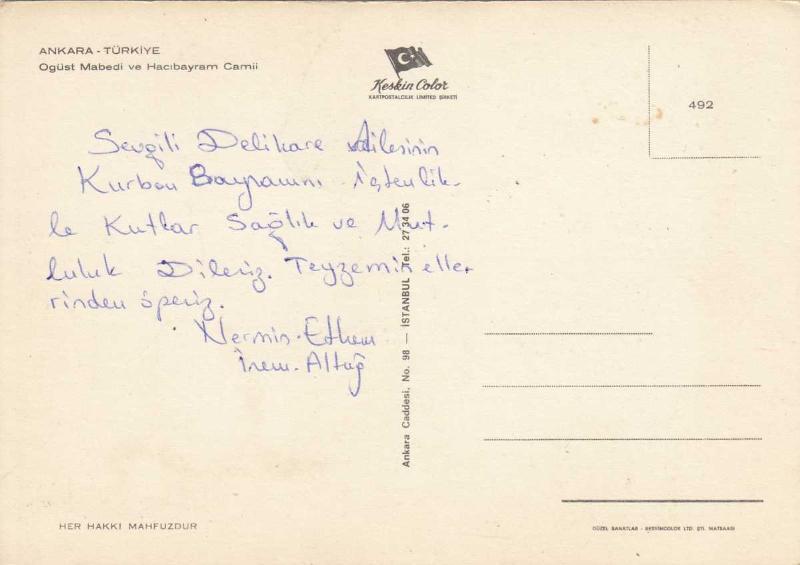 ANKARA - TÜRKİYE
Ogüst Mabedi ve Hacıbayram Camii
Keskin Color
KARTPOSTALCILIK LIMITED ŞIRKETI
492
Sevgili Delikare Ailesinin
Kurban Bayramını içtenlik-
le Kutlar Sağlık ve Mut-
luluk Dileriz. Teyzemin elle-
rinden öperiz.
Nermin - Ethem
İrem - Altuğ
Ankara Caddesi, No. 98 — İSTANBUL Tel.: 27 34 06
HER HAKKI MAHFUZDUR
GÜZEL SANATLAR - LTD. ŞTİ. MATBAASI